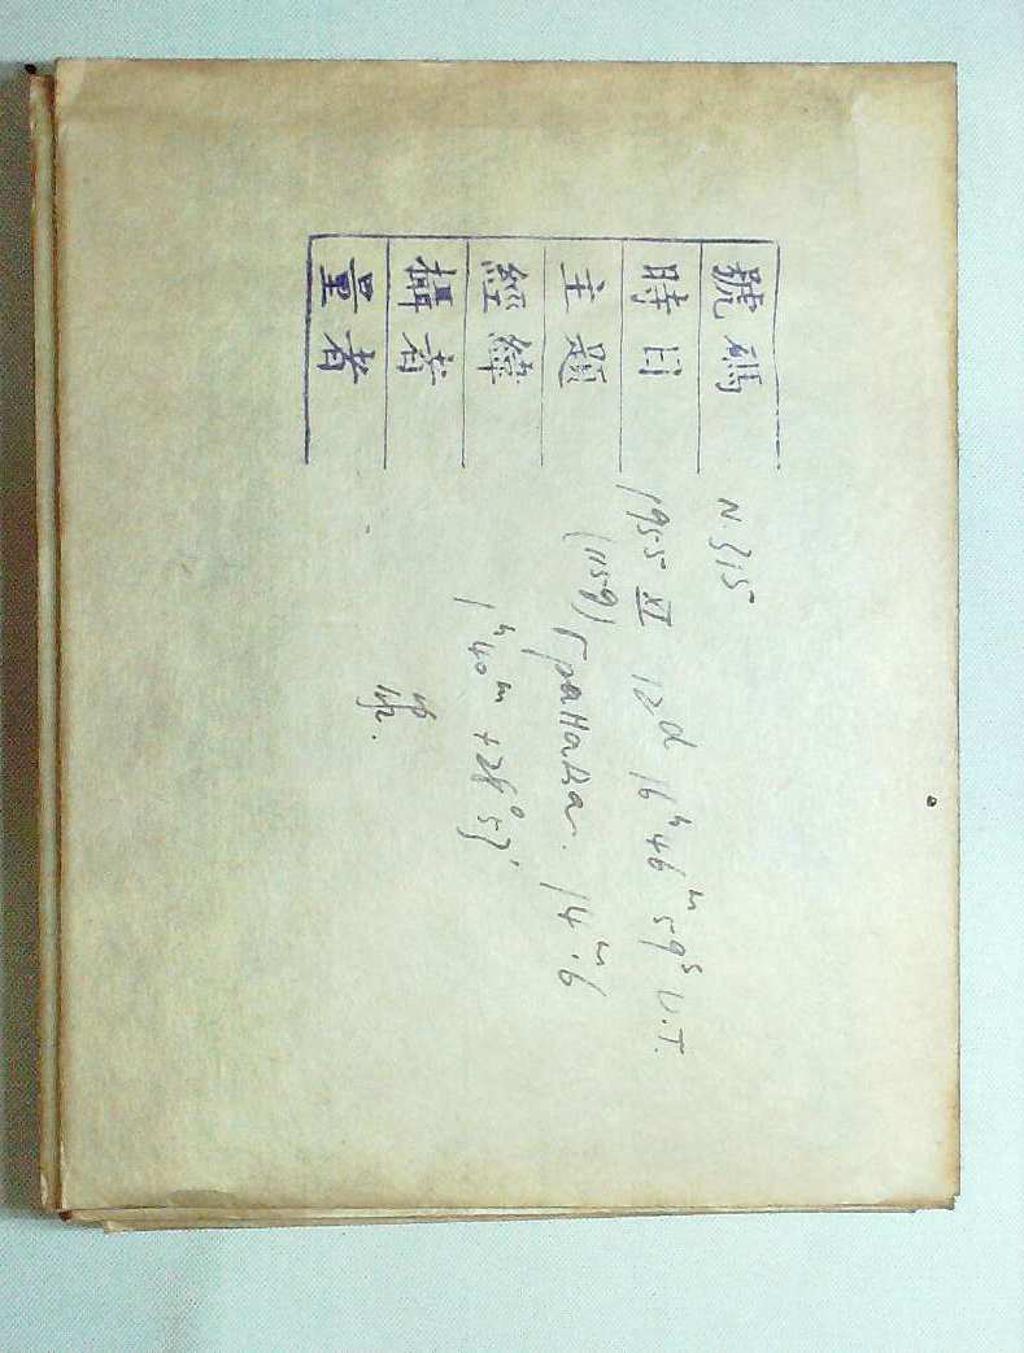 號碼 N.315
時日 1955 XI 12d 16h 46m 59s U.T.
主題 (1159) Гранада. 14m.6
經緯 1h 40m +28° 57'
攝者
量者